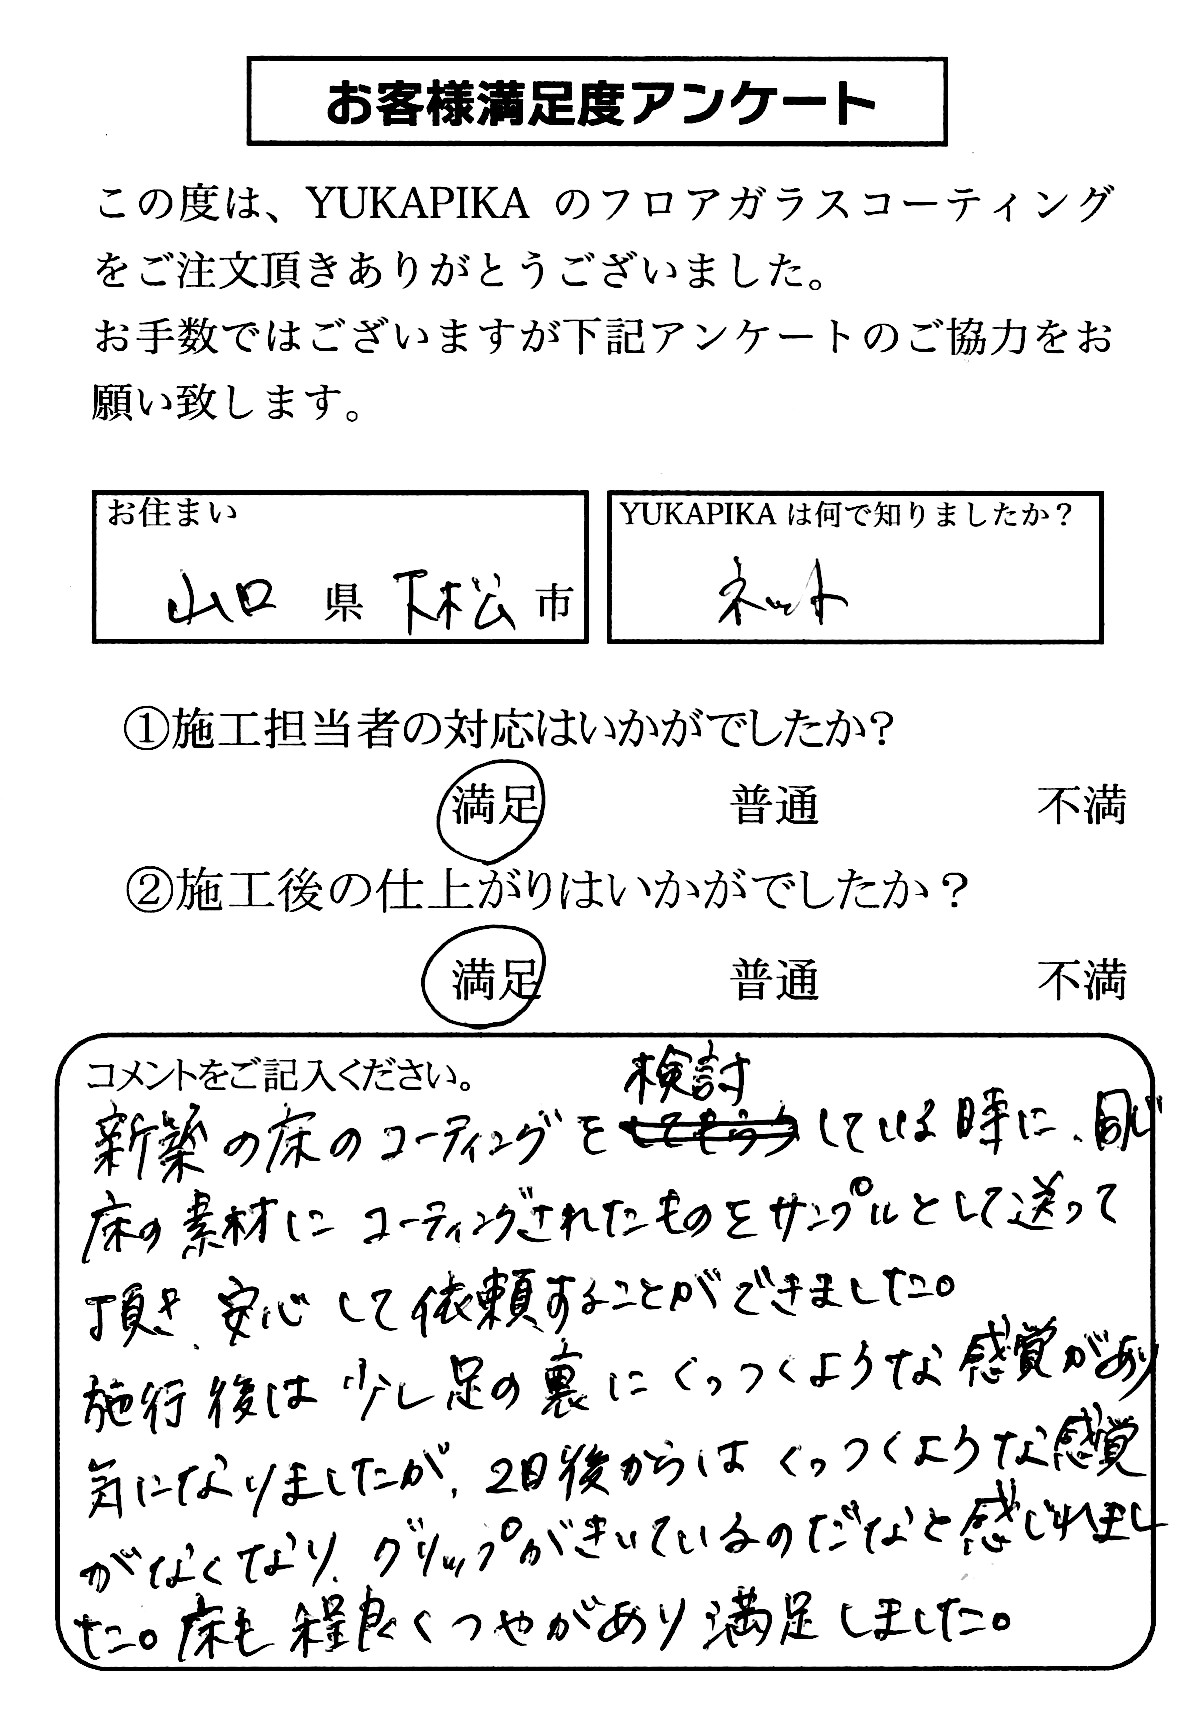 お客様満足度アンケート
この度は、YUKAPIKA のフロアガラスコーティング
をご注文頂きありがとうございました。
お手数ではございますが下記アンケートのご協力をお
願い致します。
お住まい
山口 県 下松 市
YUKAPIKA は何で知りましたか？
ネット
①施工担当者の対応はいかがでしたか?
満足 普通 不満
②施工後の仕上がりはいかがでしたか？
満足 普通 不満
コメントをご記入ください。
検討
新築の床のコーティングを してもらう している時に、同じ
床の素材に コーティングされたものをサンプルとして送って
頂き、安心して依頼することができました。
施行後は少し足の裏にくっつくような感覚があり
気になりましたが、2日後からはくっつくような感覚
がなくなり、グリップがきいているのだなと感じれまし
た。床も程良くつやがあり満足しました。